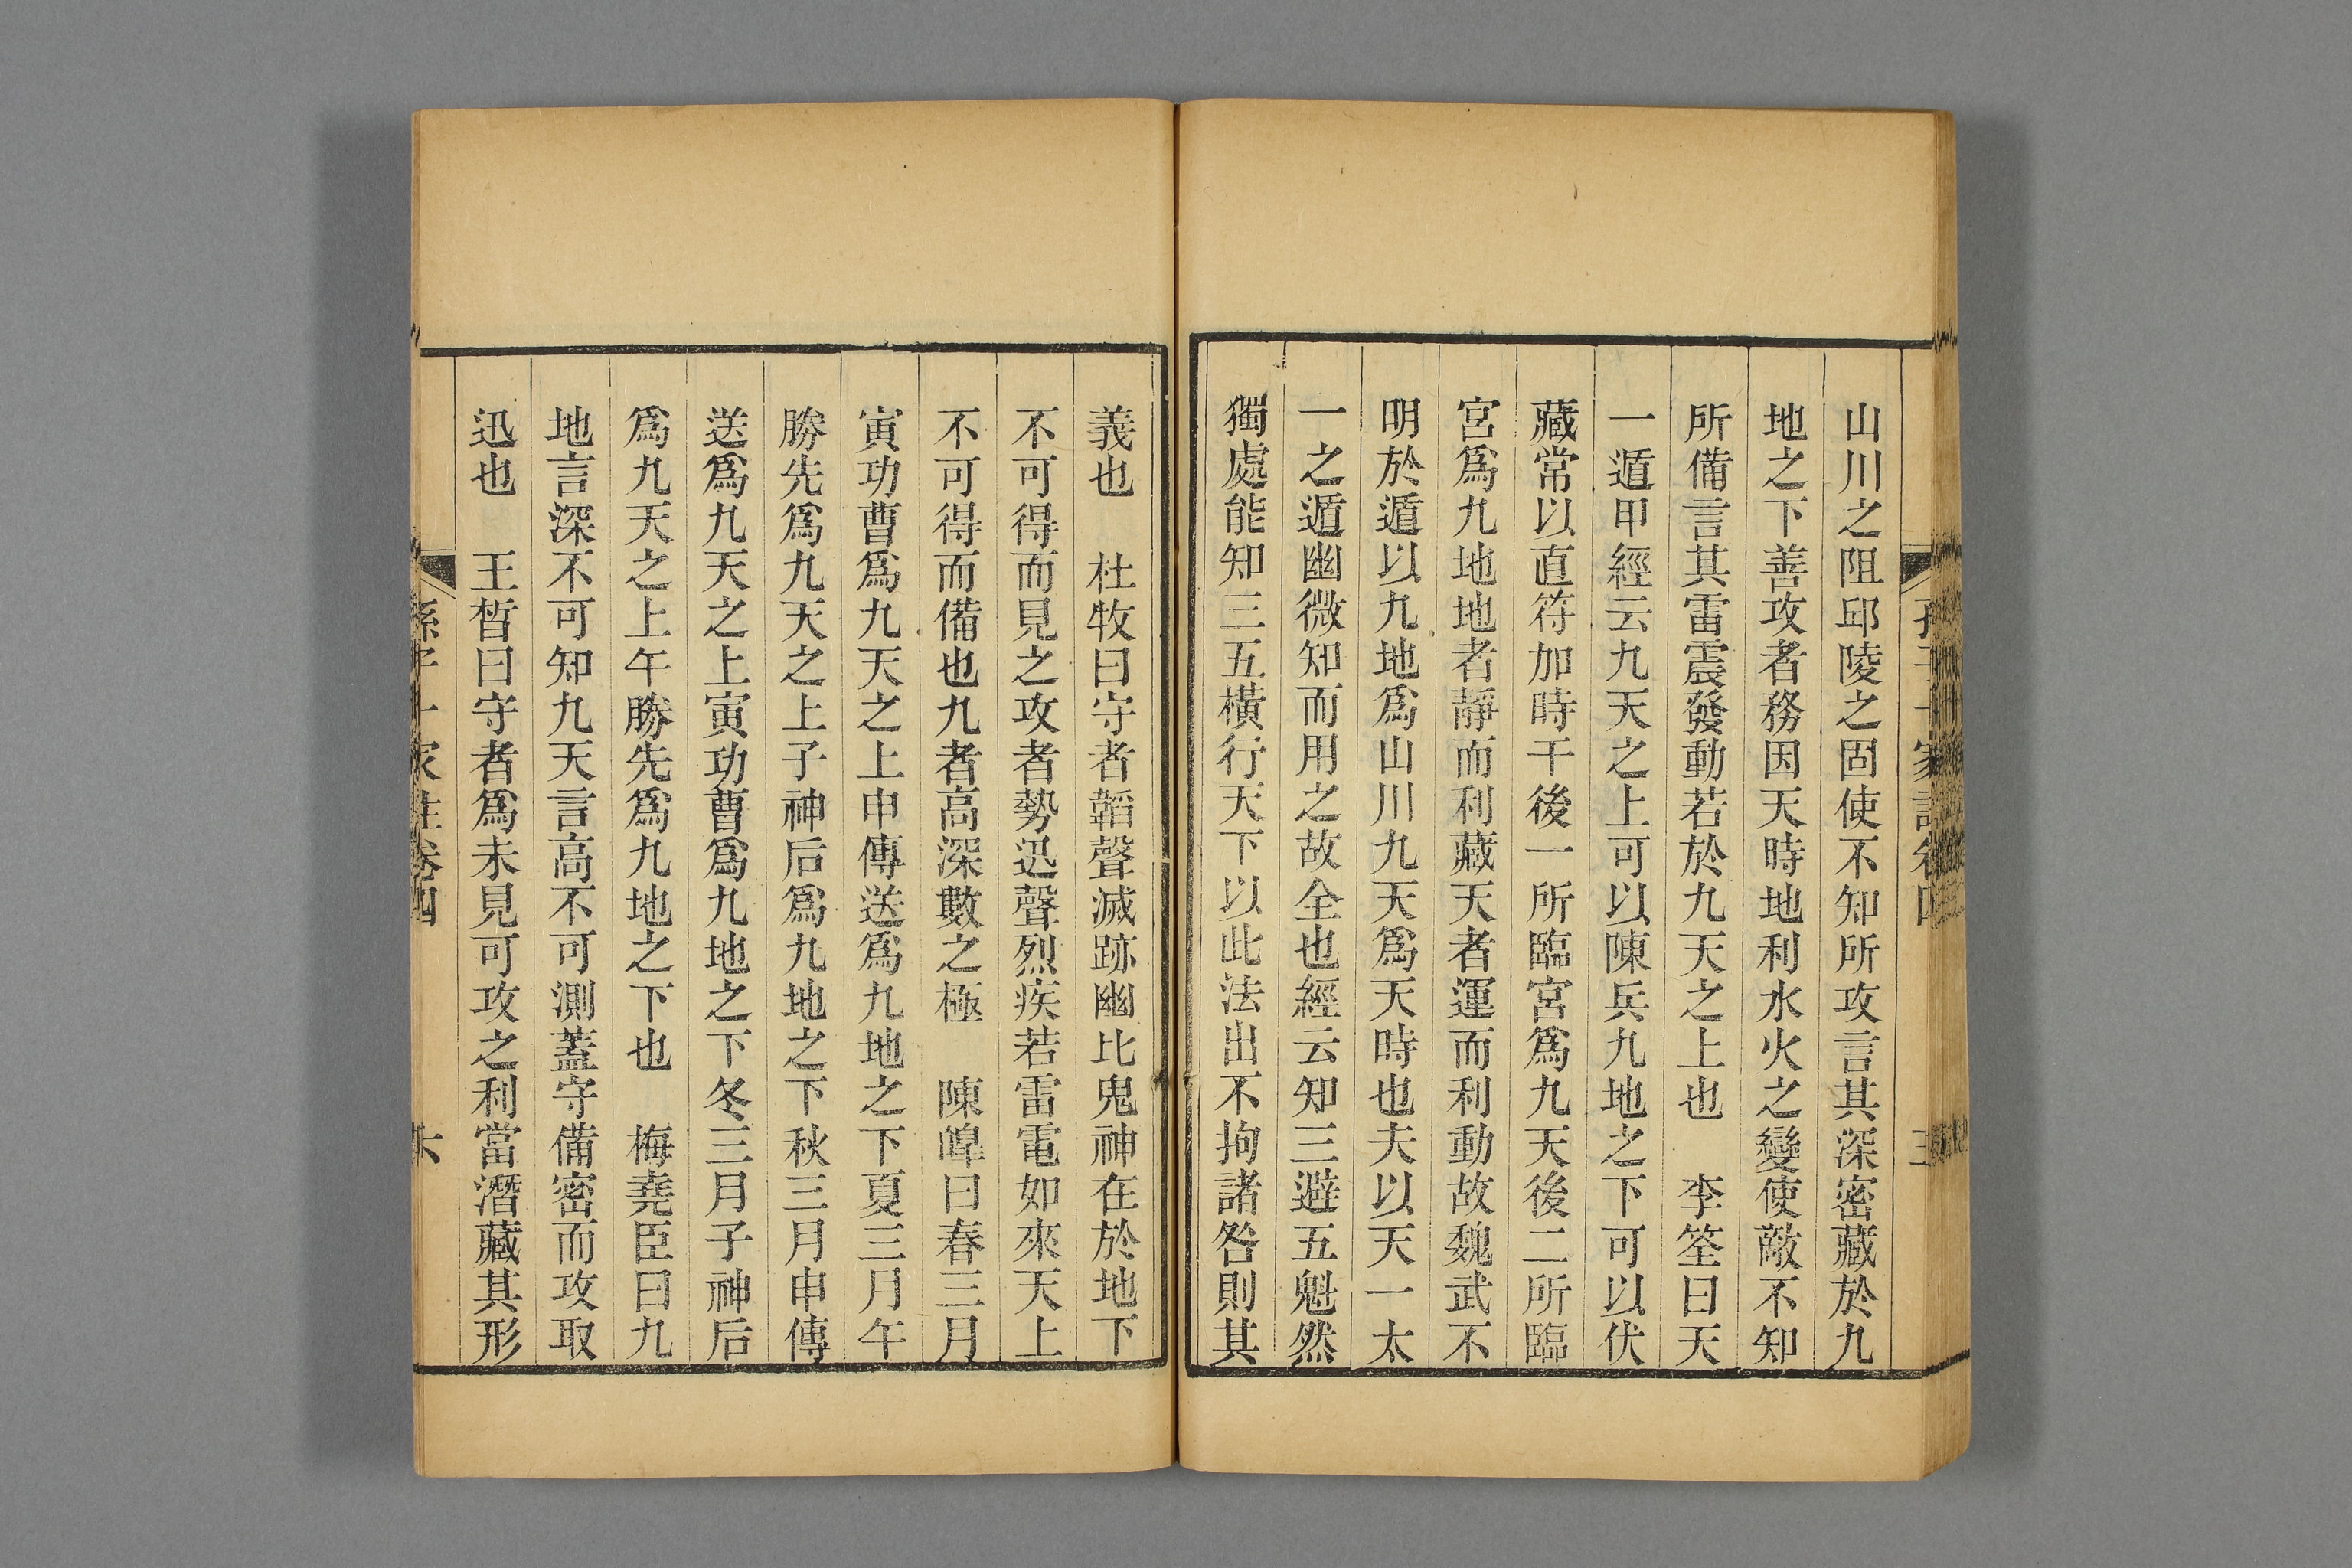 山川之阻邱陵之固使不知所攻言其深密藏於九
地之下善攻者務因天時地利水火之變使敵不知
所備言其雷震發動若於九天之上也　李筌曰天
一遁甲經云九天之上可以陳兵九地之下可以伏
藏常以直符加時干後一所臨宮爲九天後二所臨
宮爲九地地者靜而利藏天者運而利動故魏武不
明於遁以九地爲山川九天爲天時也夫以天一太
一之遁幽微知而用之故全也經云知三避五魁然
獨處能知三五橫行天下以此法出不拘諸咎則其
義也　杜牧曰守者韜聲滅跡幽比鬼神在於地下
不可得而見之攻者勢迅聲烈疾若雷電如來天上
不可得而備也九者高深數之極　陳皥曰春三月
寅功曹爲九天之上申傳送爲九地之下夏三月午
勝先爲九天之上子神后爲九地之下秋三月申傳
送爲九天之上寅功曹爲九地之下冬三月子神后
爲九天之上午勝先爲九地之下也　梅堯臣曰九
地言深不可知九天言高不可測蓋守備密而攻取
迅也　王晳曰守者爲未見可攻之利當潛藏其形
孫子十家註卷四